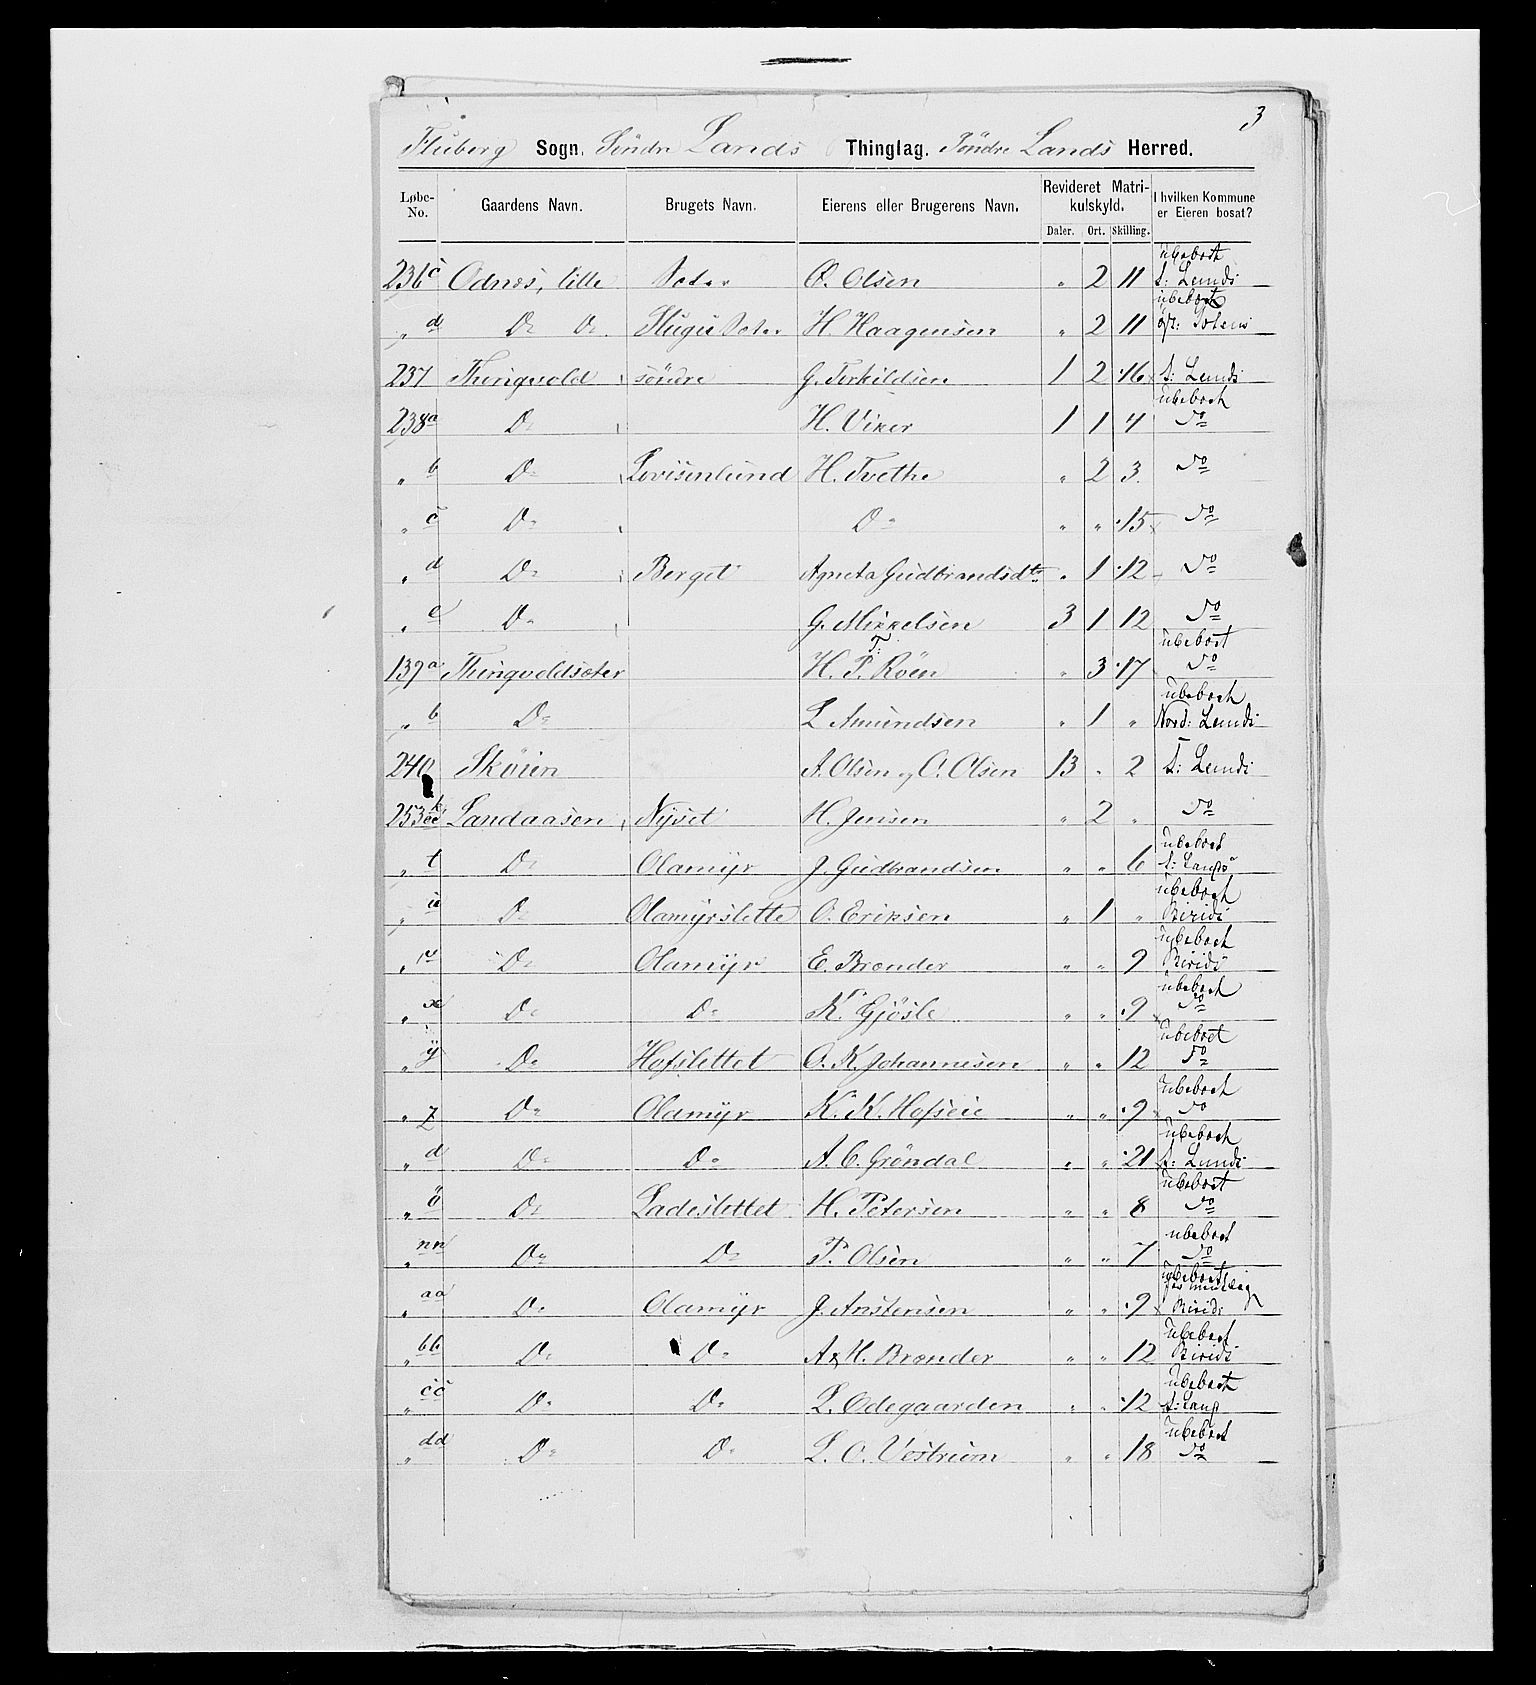 3
Fluberg Sogn. Söndre Lands Thinglag. Söndre Lands Herred.
Løbe-No. Gaardens Navn. Brugets Navn. Eierens eller Brugerens Navn. Revideret Matrikulskyld. I hvilken Kommune er Eieren bosat?
Daler. Ort. Skilling.
236c Odnæs, lille Sæter O. Olsen " 2 11 ubeboet S: Lands
" d Do Do Stugu Sæter H. Haagensen " 2 11 ubeboet Totens
237 Thingvold söndre G. Terkildsen 1 2 16 S: Lands
238a Do H. Viker 1 1 4 ubeboet Do
" b Do Lovisenlund H. Tvethe " 2 3 Do
" c Do Do " " 15 Do
" d Do Berget Agneta Gudbrandsdtr " 1 12 Do
" e Do G. Mikkelsen 3 1 12 Do
139a Thingvoldsæter H. T. Röen " 3 17 ubeboet Do
" b Do L Amundsen " 1 " ubeboet Nord: Lands
240 Sköien A. Olsen og O. Olsen 13 " 2 S: Lands
253 Landaasen Nyset H. Jensen " 2 " Do
" t Do Olamyr J. Gudbrandsen " " 6 ubeboet S: Lands
" u Do Olamyrslette O. Eriksen " 1 " ubeboet Birids
" v Do Olamyr E. Brænder " " 9 ubeboet Birids
" x Do Do K. Gjösle " " 9 ubeboet Do
" y Do Hofslettet O. K. Johannesen " " 12 ubeboet Do
" z Do Olamyr K. K. Hofseie " " 9 ubeboet Do
" Do Do A. C. Gröndal " " 21 ubeboet S: Lands
" ö Do Ladeslettet H. Petersen " " 8 ubeboet Do
" nn Do Do P. Olsen " " 7 ubeboet Do
" aa Do Olamyr J. Anstensen " " 9 ubeboet Birids
" bb Do Do A & H. Brænder " " 12 ubeboet Birids
" cc Do Do L. Odegaarden " " 12 ubeboet S: Land
" dd Do Do L. O. Vestrum " " 18 ubeboet Do